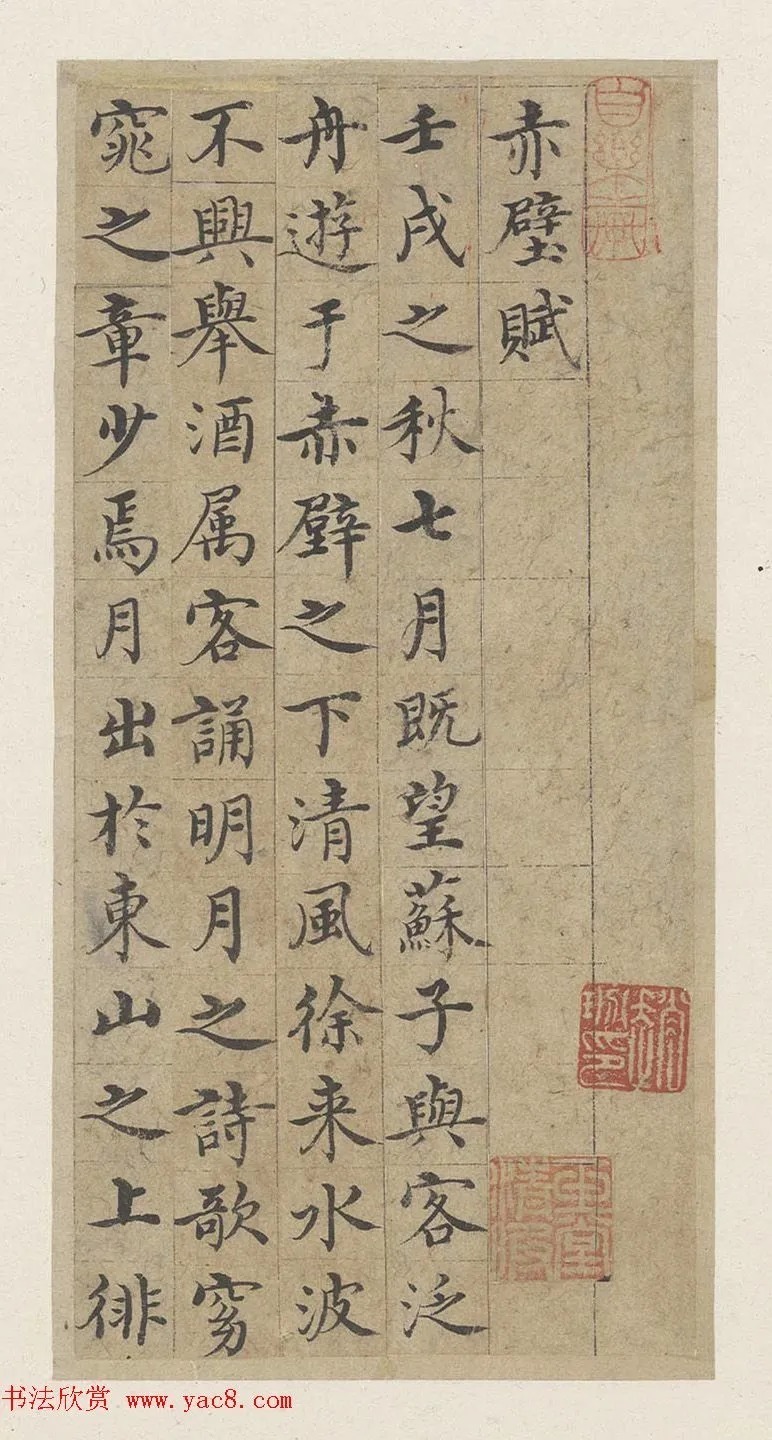 赤壁賦
壬戌之秋七月既望蘇子與客泛
舟遊于赤壁之下清風徐来水波
不興舉酒属客誦明月之詩歌窈
窕之章少焉月出於東山之上徘
书法欣赏 www.yac8.com